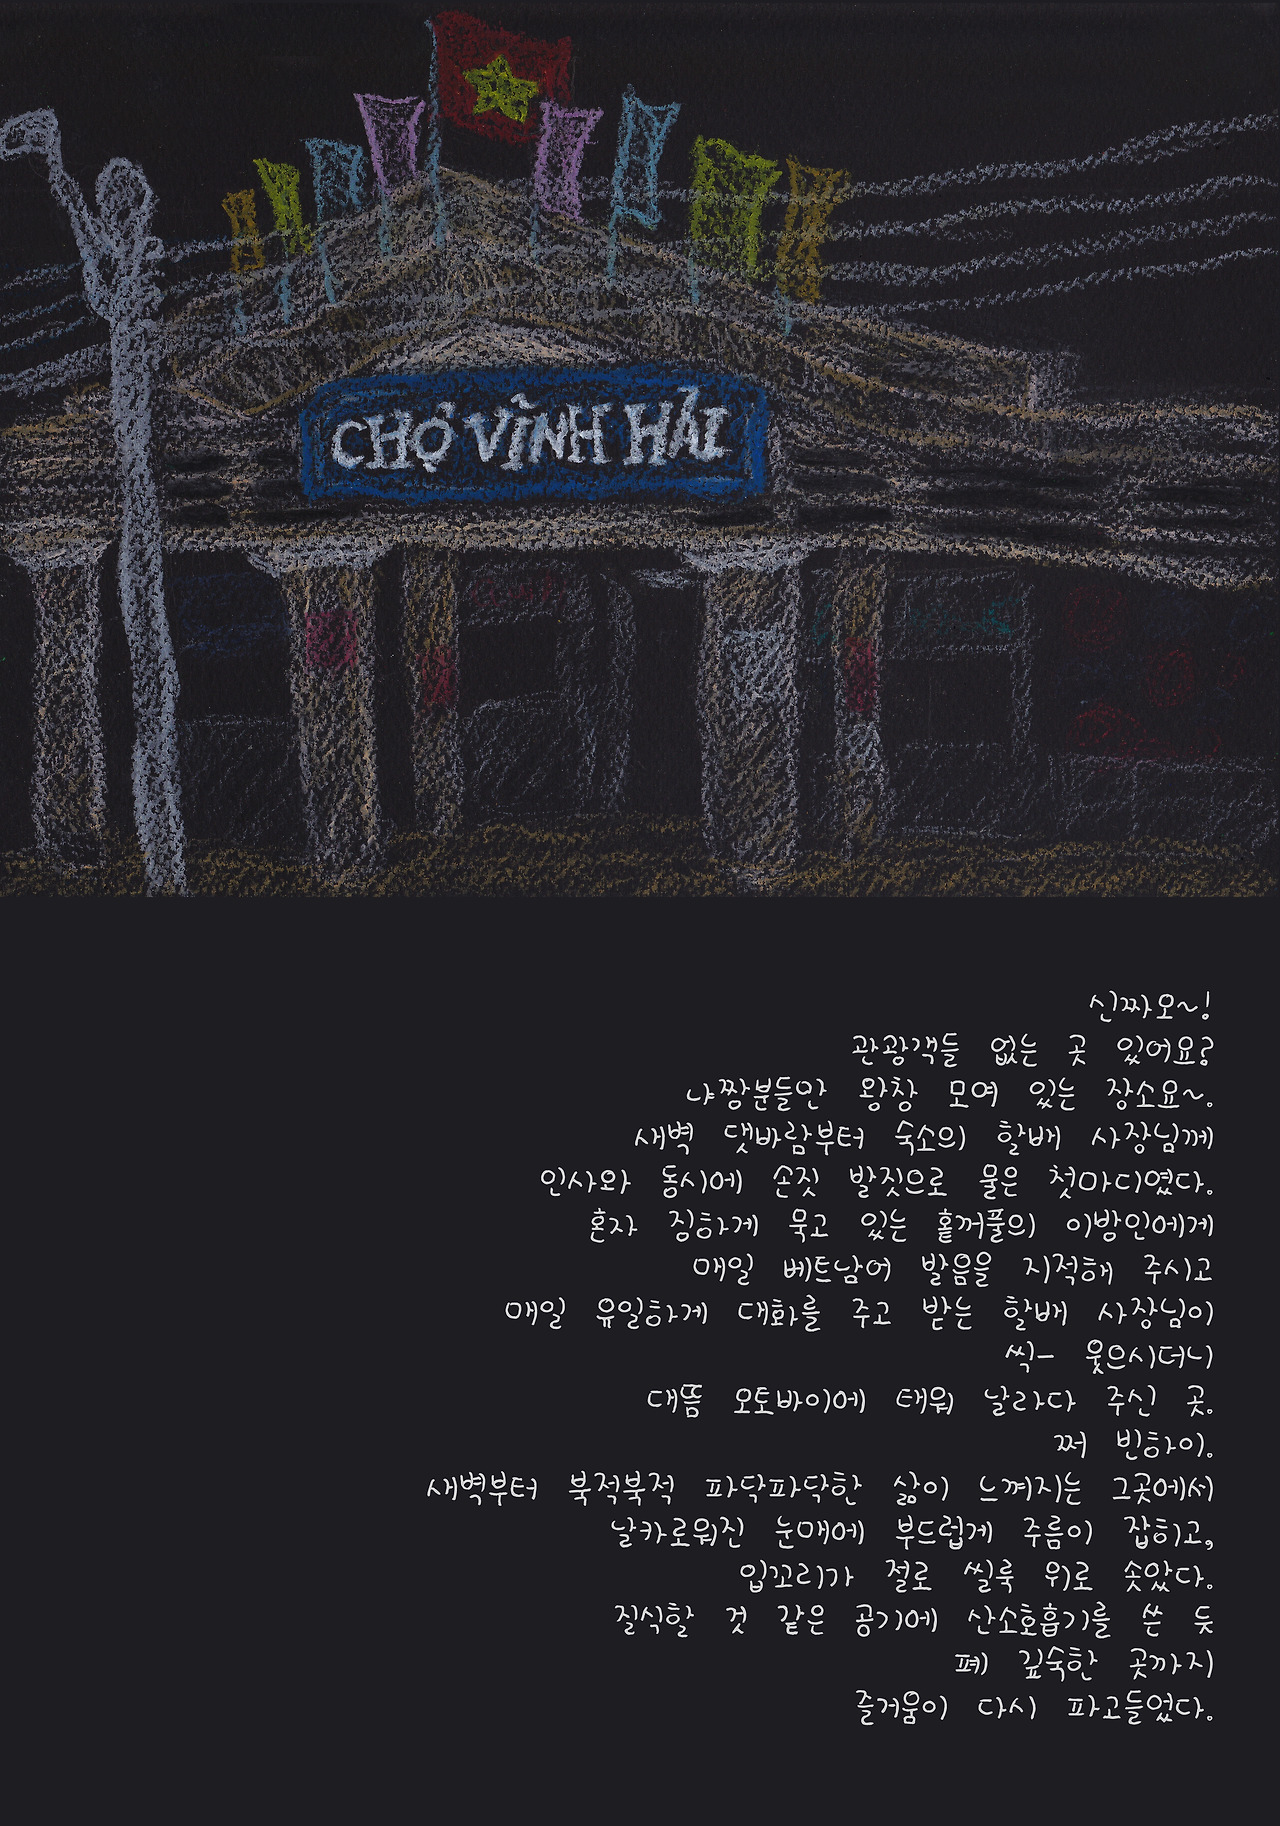 CHỢ VĨNH HẢI
신짜오~!
관광객들 없는 곳 있어요?
냐짱분들만 왕창 모여 있는 장소요~.
새벽 댓바람부터 숙소의 할배 사장님께
인사와 동시에 손짓 발짓으로 물은 첫마디였다.
혼자 짐하게 묵고 있는 홀꺼풀의 이방인에게
매일 베트남어 발음을 지적해 주시고
매일 유일하게 대화를 주고 받는 할배 사장님이
씩- 웃으시더니
대뜸 오토바이에 태워 날라다 주신 곳.
쩌 빈하이.
새벽부터 북적북적 파닥파닥한 삶이 느껴지는 그곳에서
날카로워진 눈매에 부드럽게 주름이 잡히고,
입꼬리가 절로 씰룩 위로 솟았다.
질식할 것 같은 공기에 산소호흡기를 쓴 듯
폐 깊숙한 곳까지
즐거움이 다시 파고들었다.